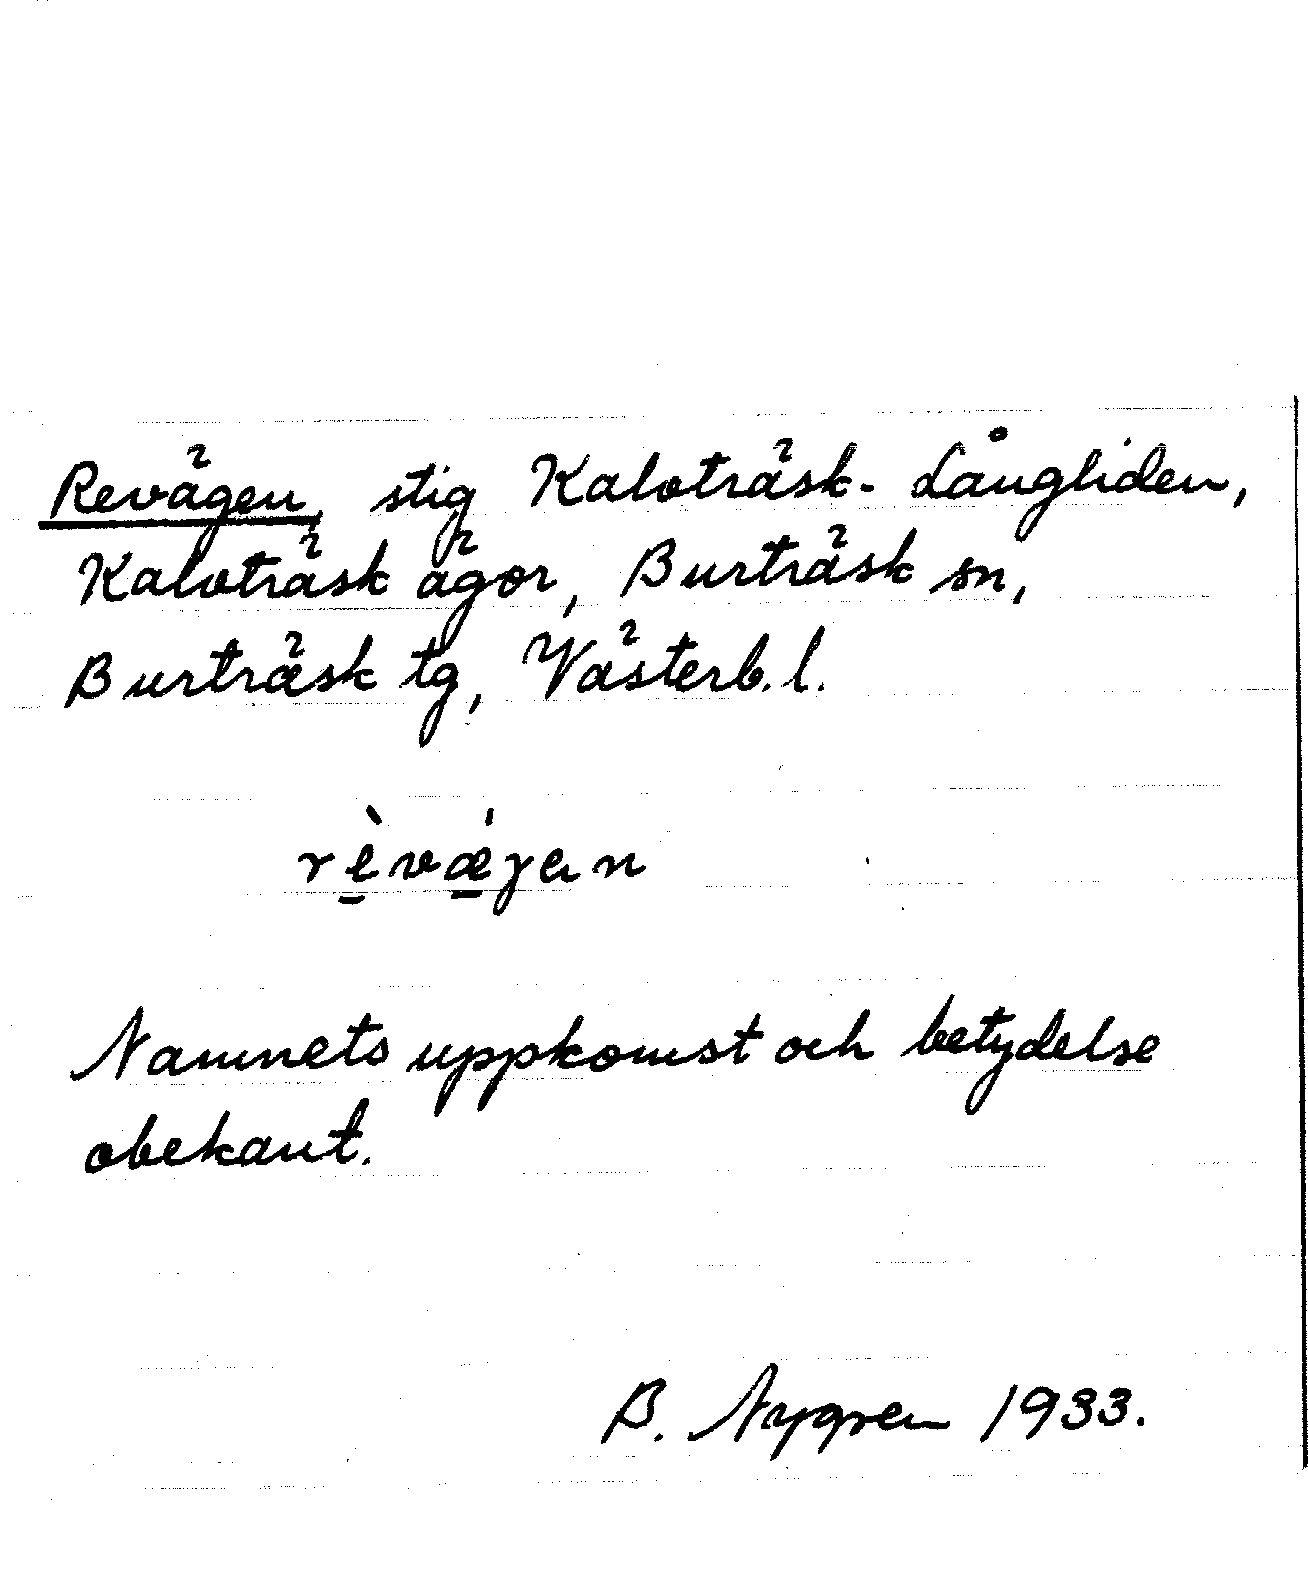 Revägen, stig Kalvträsk-Långliden,
Kalvträsk ägor, Burträsk sn,
Burträsk tg, Västerb. l.
rè̱vǽ̱gan
Namnets uppkomst och betydelse
obekant.
B. Nygren 1933.